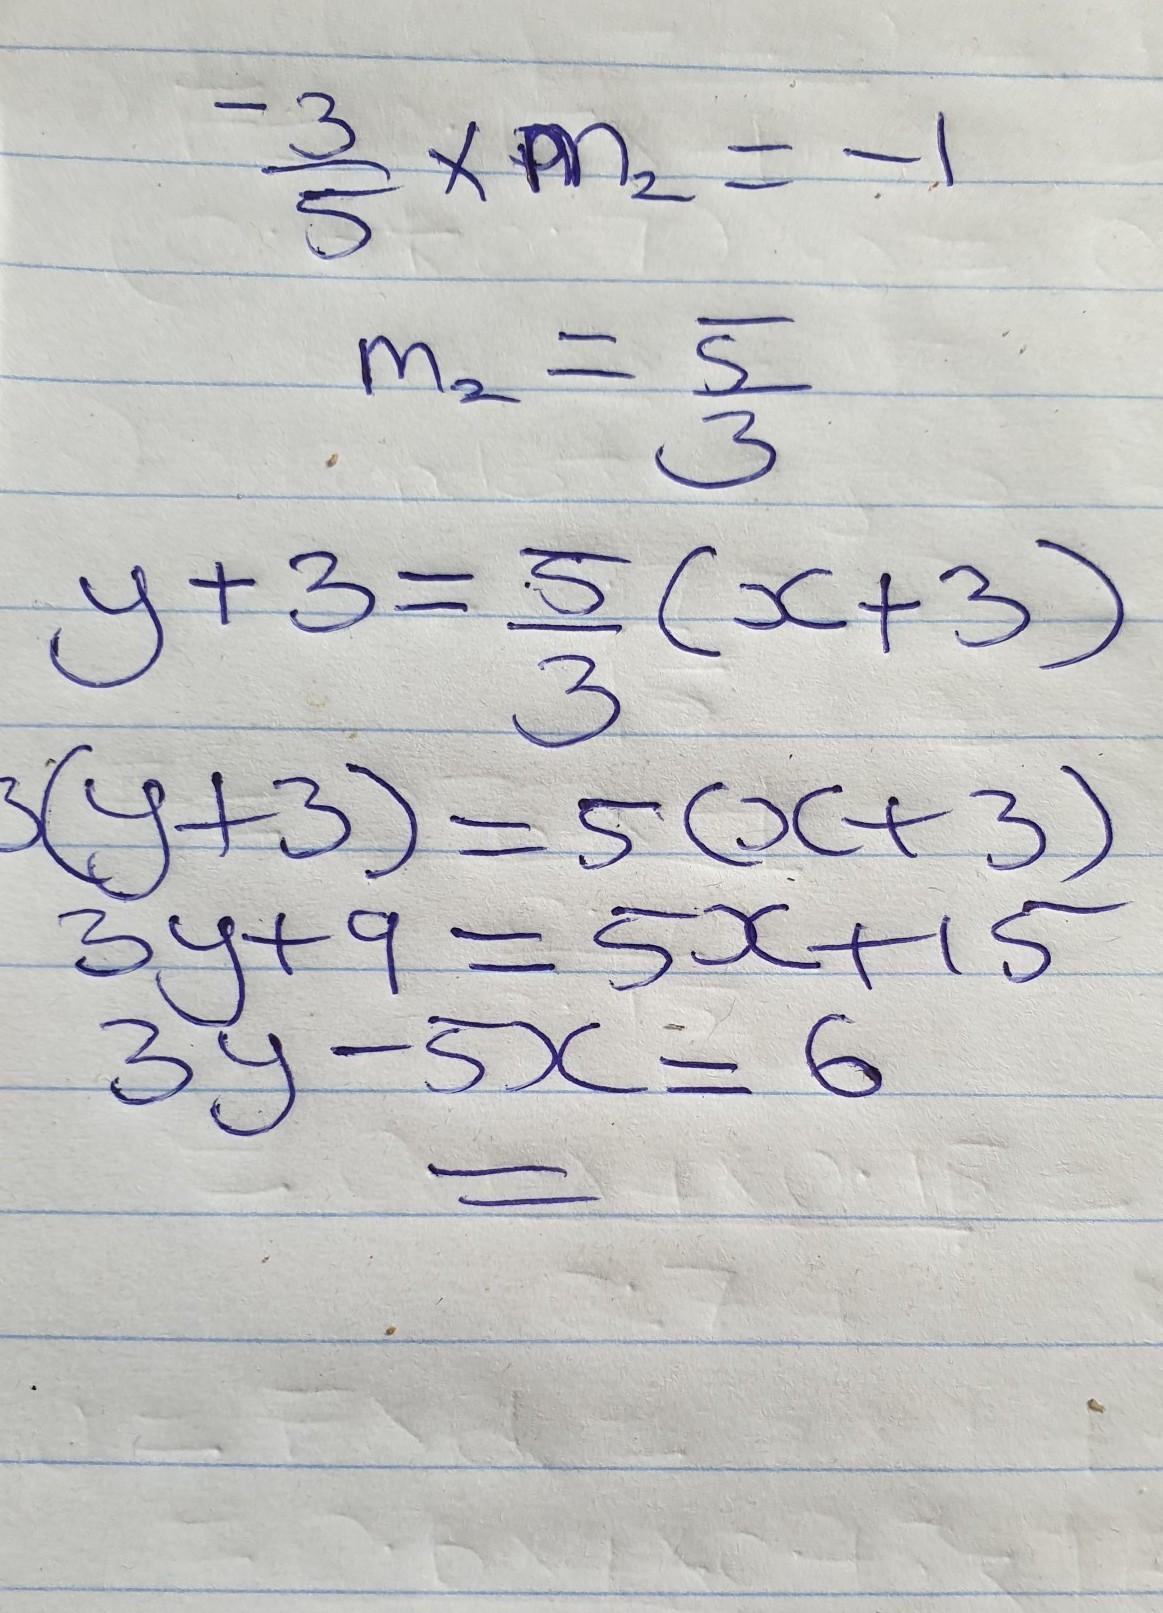 -3/5 × m₂ = -1
m₂ = 5/3
y + 3 = 5/3 (x + 3)
3(y + 3) = 5(x + 3)
3y + 9 = 5x + 15
3y - 5x = 6
=